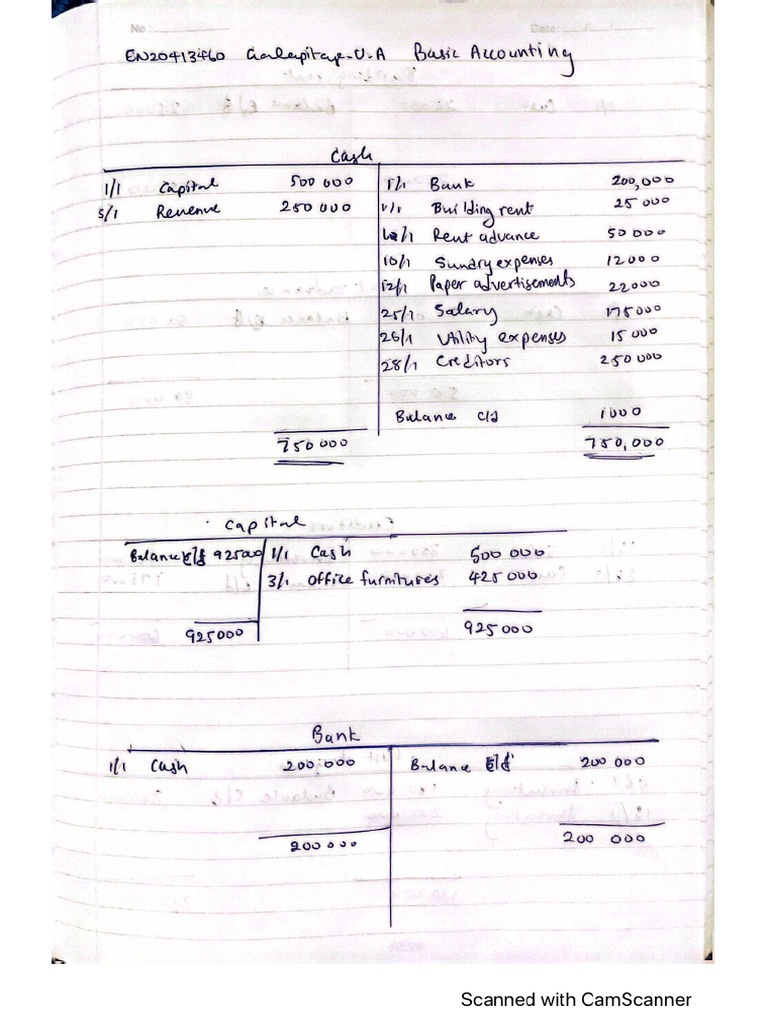 No: Date: / /
EN20413460 Galapitage.U.A Basic Accounting
Cash
1/1 Capital 500 000 1/1 Bank 200,000
5/1 Revenue 250 000 1/1 Building rent 25 000
1/1 Rent advance 50 000
10/1 Sundry expenses 12000
12/1 Paper advertisements 22000
25/1 Salary 175000
26/1 Utility expenses 15 000
28/1 Creditors 250 000
Balance c/d 1000
750 000 750,000
Capital
Balance c/d 925000 1/1 Cash 500 000
3/1 Office furnitures 425 000
925000 925 000
Bank
1/1 Cash 200,000 Balance c/d 200 000
200 000 200 000
Scanned with CamScanner